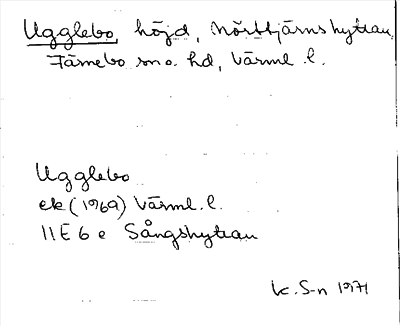 Ugglebo, höjd, Nordtjärnshyttan,
Färnebo sn o. hd, Värml. l.
Ugglebo
ek (1969) Värml. l.
11E 6 e Sångshyttan
K. S-n 1971